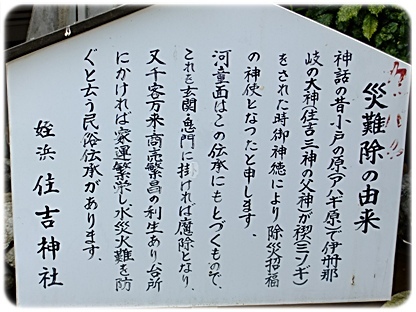 災難除の由来
神話の昔小戸の原(アハギ原)で伊弉那
岐の大神(住吉三神の父神)が禊(ミソギ)
をされた時御神徳により除災招福
の神使となつたと申します。
河童面はこの伝承にもとづくもので、
これを玄関、鬼門に掛ければ魔除となり、
又千客万来、商売繁昌の利生あり、台所
にかければ家運繁栄し、水災火難を防
ぐと云う民俗伝承があります。
姪浜 住吉神社